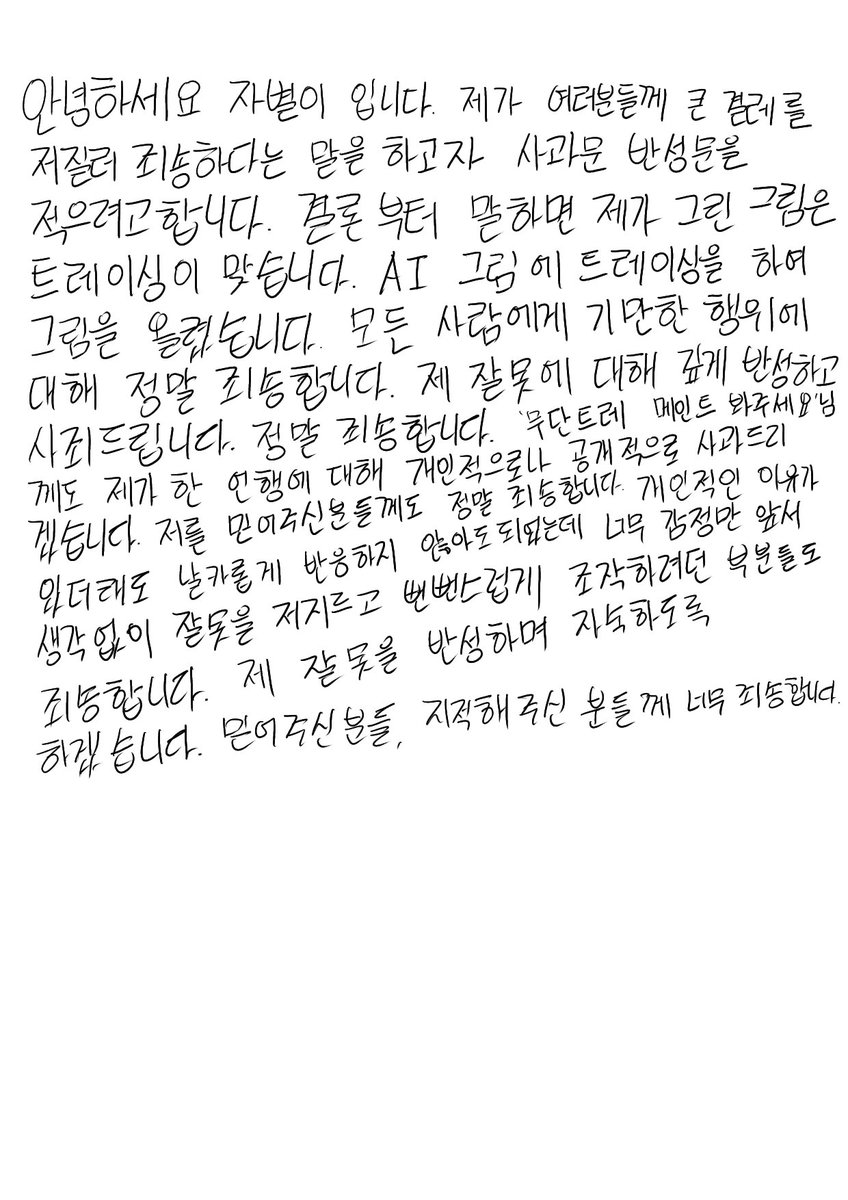 안녕하세요 자별이 입니다. 제가 여러분들께 큰 결레를
저질러 죄송하다는 말을 하고자 사과문 반성문을
적으려고합니다. 결론부터 말하면 제가 그린 그림은
트레이싱이 맞습니다. AI 그림에 트레이싱을 하여
그림을 올렸습니다. 모든 사람에게 기만한 행위에
대해 정말 죄송합니다. 제 잘못에 대해 깊게 반성하고
사죄드립니다. 정말 죄송합니다. '무단트레 메인트 봐주세요'님
께도 제가 한 언행에 대해 개인적으로나 공개적으로 사과드리
겠습니다. 저를 믿어주신분들께도 정말 죄송합니다. 개인적인 이유가
있더래도 날카롭게 반응하지 않아도되었는데 너무 감정만 앞서
생각없이 잘못을 저지르고 뻔뻔스럽게 조작하려던 부분들도
죄송합니다. 제 잘못을 반성하며 자숙하도록
하겠습니다. 믿어주신분들, 지적해주신 분들께 너무 죄송합니다.